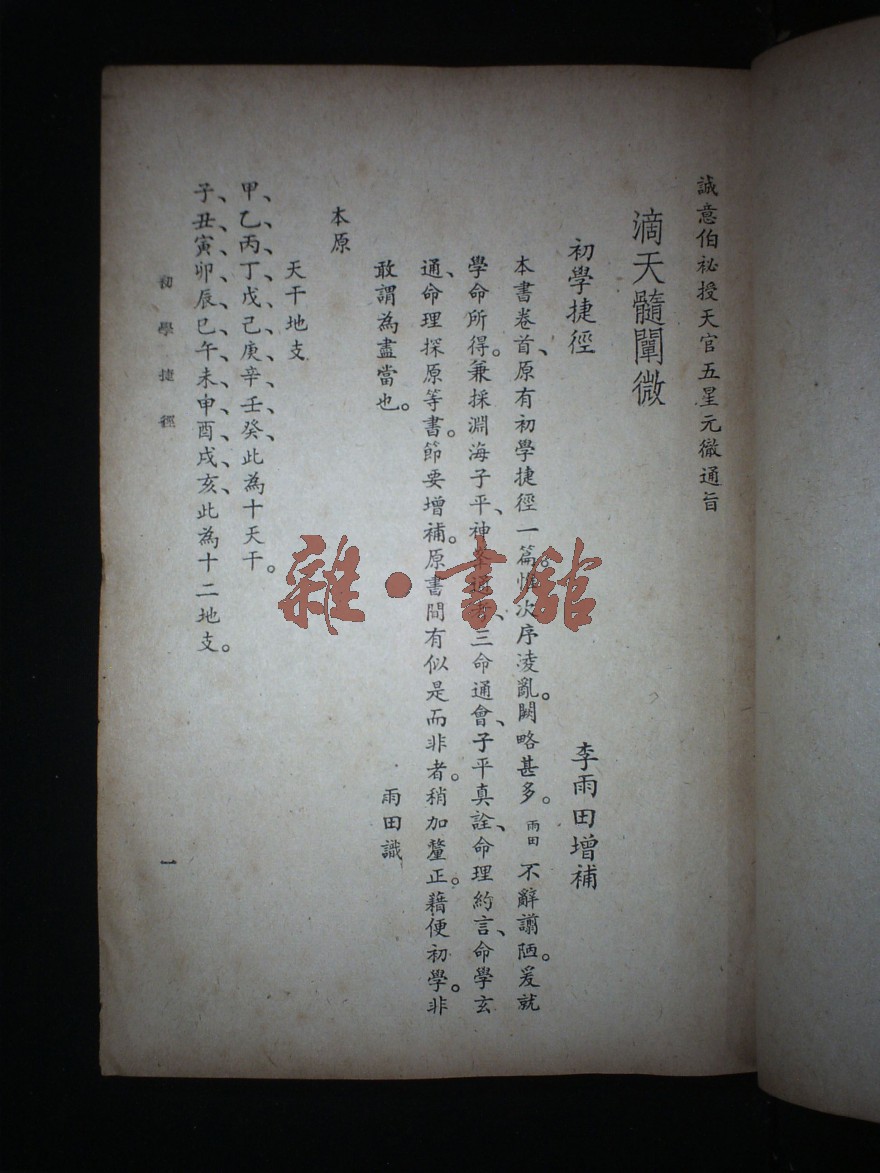 誠意伯祕授天官五星元徹通旨
滴天髓闡微
初學捷徑
李雨田增補
本書卷首、原有初學捷徑一篇。惟次序淩亂。闕略甚多。雨田不辭譾陋。爰就
學命所得。兼採淵海子平、神峯通考、三命通會、子平真詮、命理約言、命學玄
通、命理探原等書。節要增補。原書間有似是而非者。稍加釐正。藉便初學。非
敢謂為盡當也。
雨田識
本原
天干地支
甲、乙、丙、丁、戊、己、庚、辛、壬、癸、此為十天干。
子、丑、寅、卯、辰、巳、午、未、申、酉、戌、亥、此為十二地支。
初學捷徑
一
雜·書館